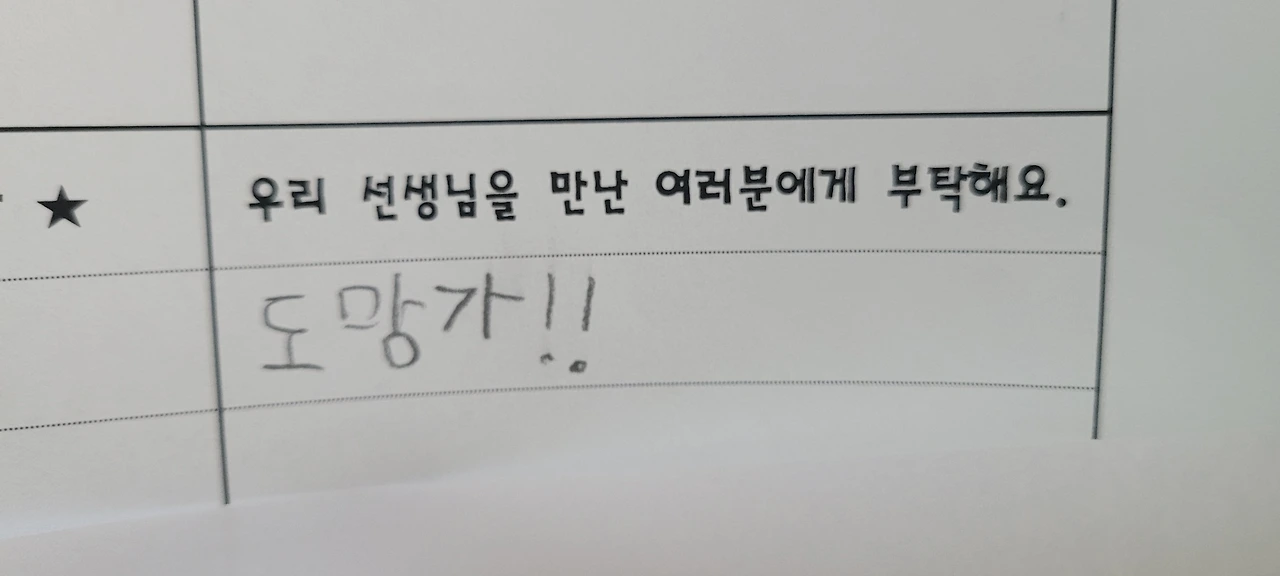 ★ 우리 선생님을 만난 여러분에게 부탁해요.
도망가!!